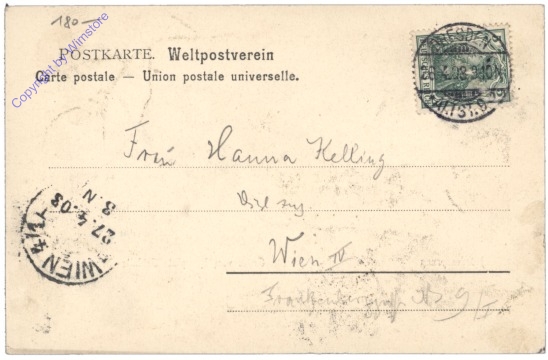 180-
Copyright by Wimstore
POSTKARTE. Weltpostverein
Carte postale — Union postale universelle.
DRESDEN
ALTST.
Frau Hanna Kelling
Wien IV
WIEN 4/1
27.4.03
3 N